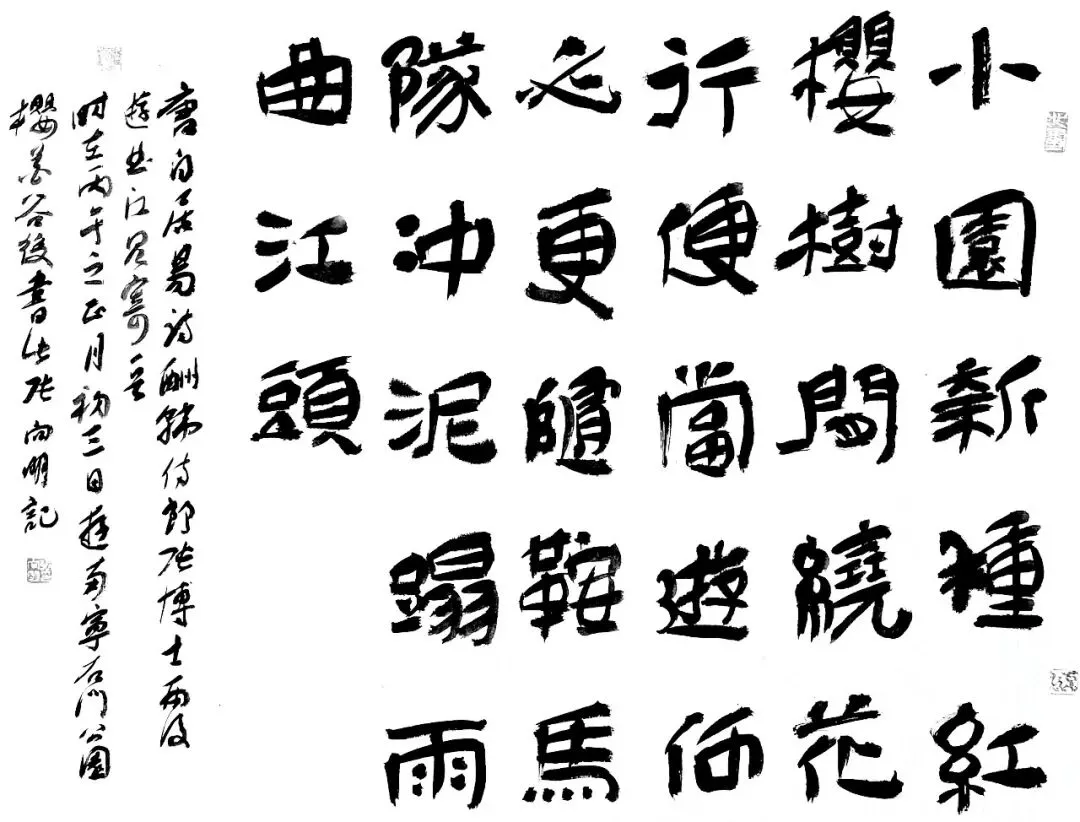 小園新種紅
櫻樹閒繞花
行便當遊何
必更隨鞍馬
隊冲泥蹋雨
曲江頭
唐白居易诗酬韩侍郎张博士雨後
遊曲江見寄
时在丙午之正月初三日遊南寧石门公園
櫻花谷後書此张向明記